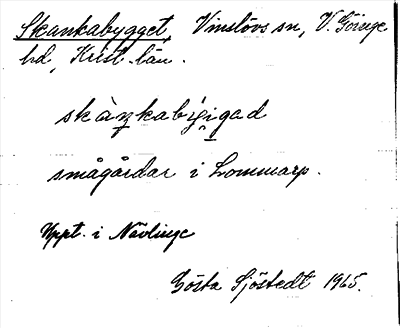 Skankabygget, Vinslövs sn, V. Göinge
hd, Krist. län.
skànkabýgigad
smågårdar i Lommarp.
Uppt. i Nävlinge
Gösta Sjöstedt 1965.